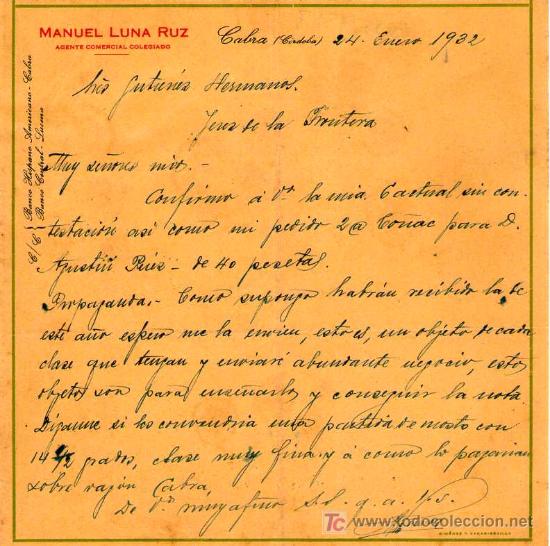 MANUEL LUNA RUZ
AGENTE COMERCIAL COLEGIADO
Cabra (Córdoba) 24 Enero 1932
C/C Banco Hispano Americano - Cabra
Banco Central - Lucena
Gutierrez Hermanos.
Jerez de la Frontera
Muy señores mios.-
Confirmo á Vs. la mia 6 actual sin con-
testación así como mi pedido 2@ Coñac para D.
Agustin - de 40 pesetas.
Propaganda.- Como supongo habrán recibido la de
este año espero me la envien, esto es, un objeto de cada
clase que tengan y enviaré abundante negocio, estos
objetos son para enseñarlos y conseguir la nota.
Diganme si les convendria una partida de mosto con
14 1/2 grados, clase muy fina y á como lo pagarian
sobre vagón Cabra,
De Vs. muy afmo s.s. q.e.
TC todocoleccion.net